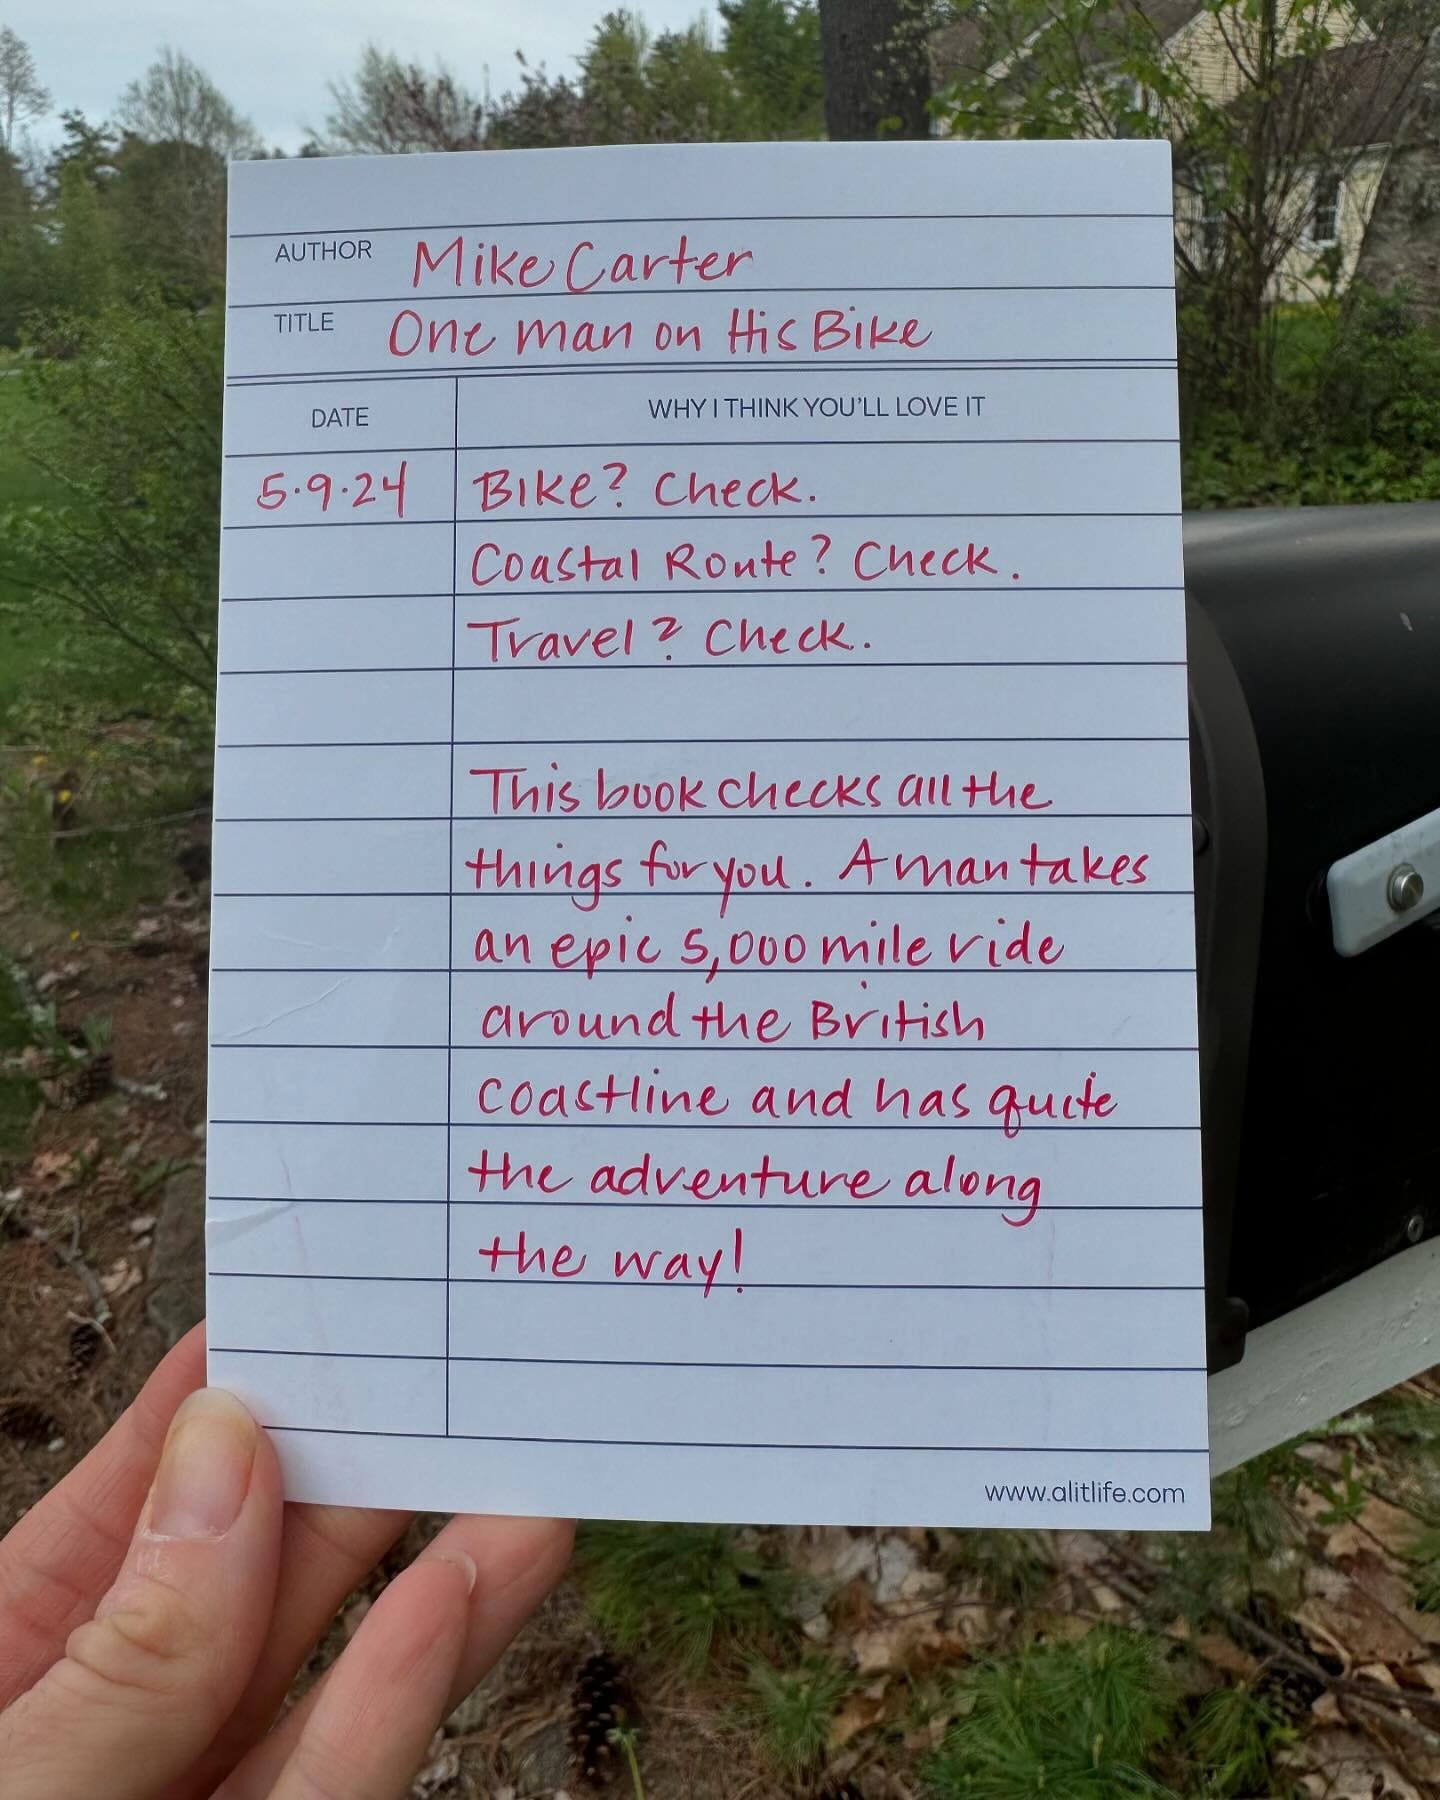 AUTHOR Mike Carter
TITLE One man on His Bike
DATE WHY I THINK YOU'LL LOVE IT
5.9.24 Bike? Check.
Coastal Route? Check.
Travel? Check.
This book checks all the
things for you. A man takes
an epic 5,000 mile ride
around the British
coastline and has quite
the adventure along
the way!
www.alitlife.com